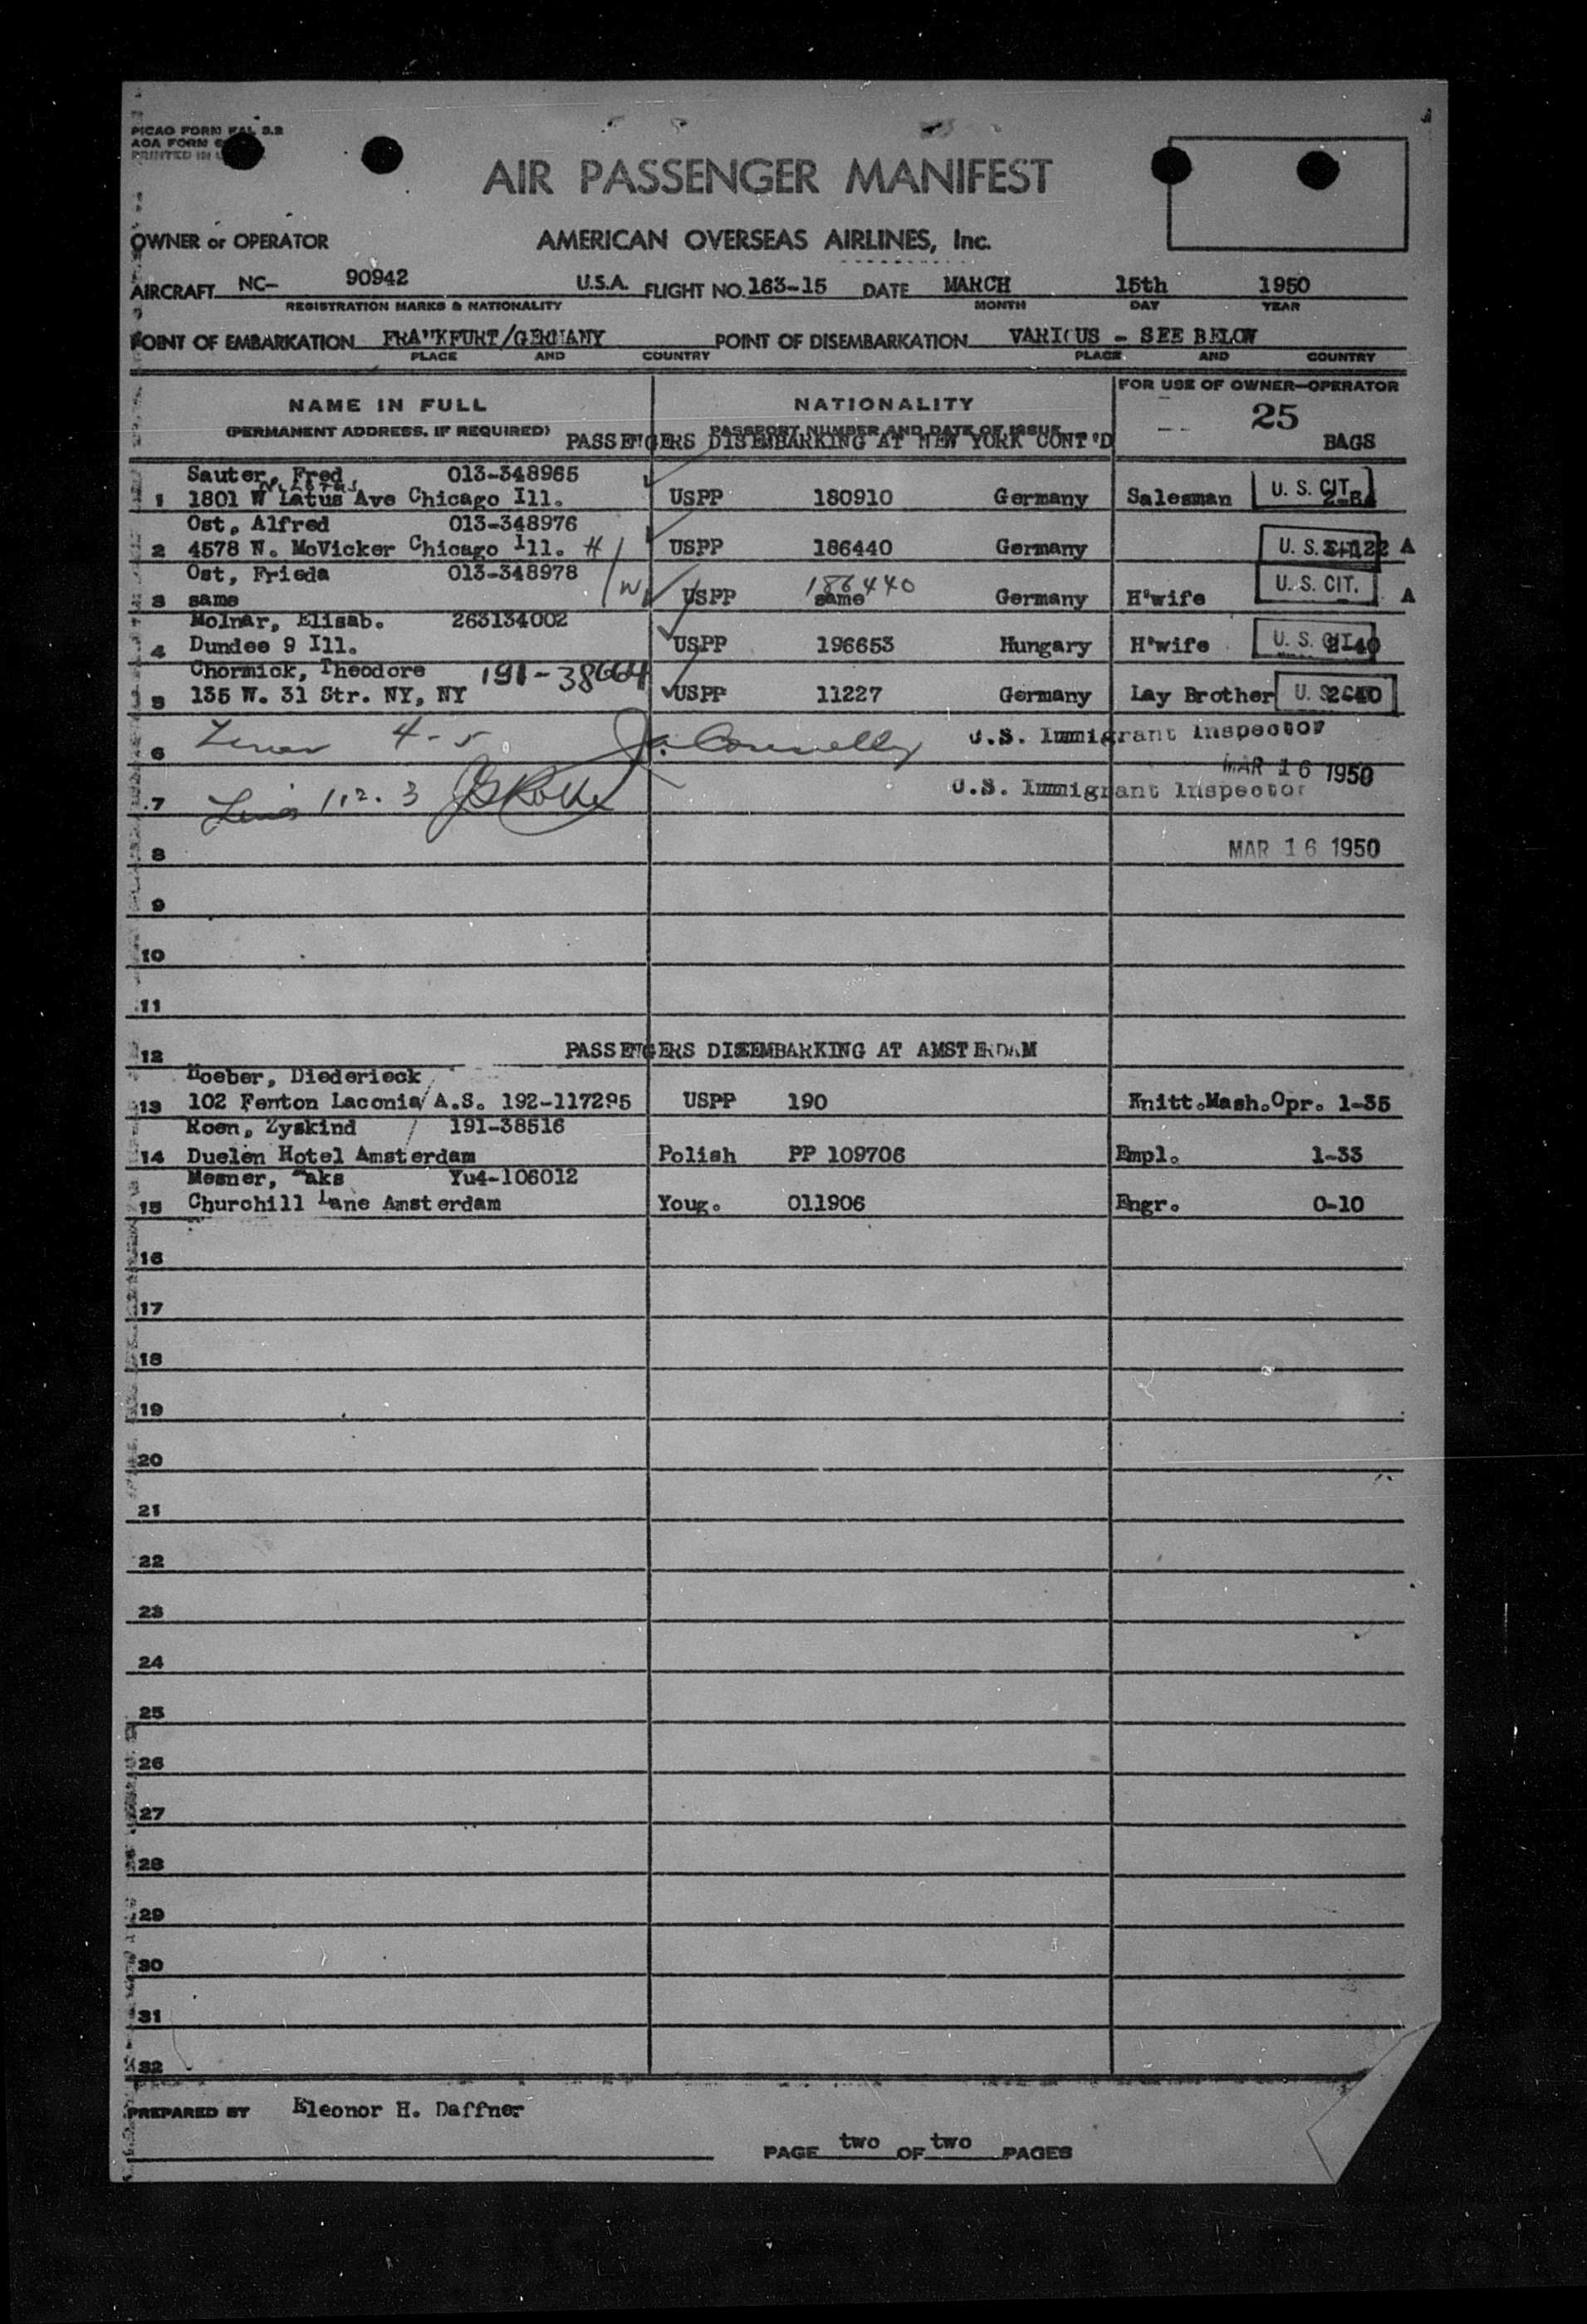 PICAO FORM FAL 3.2
AOA FORM
PRINTED IN U
AIR PASSENGER MANIFEST
OWNER or OPERATOR AMERICAN OVERSEAS AIRLINES, Inc.
AIRCRAFT NC- 90942 U.S.A. FLIGHT NO. 163-15 DATE MARCH 15th 1950
REGISTRATION MARKS & NATIONALITY MONTH DAY YEAR
POINT OF EMBARKATION FRANKFURT/GERMANY POINT OF DISEMBARKATION VARIOUS - SEE BELOW
PLACE AND COUNTRY PLACE AND COUNTRY
NAME IN FULL NATIONALITY FOR USE OF OWNER-OPERATOR
(PERMANENT ADDRESS, IF REQUIRED) PASSPORT NUMBER AND DATE OF ISSUE 25
PASSENGERS DISEMBARKING AT NEW YORK CONT'D BAGS
Sauter, Fred 013-348965
1 1801 W Latus Ave Chicago Ill. USPP 180910 Germany Salesman U. S. CIT.
Ost, Alfred 013-348976
2 4578 N. McVicker Chicago Ill. H USPP 186440 Germany U. S. CIT. A
Ost, Frieda 013-348978
3 same W USPP same 186440 Germany H'wife U. S. CIT. A
Molnar, Elisab. 263134002
4 Dundee 9 Ill. USPP 196653 Hungary H'wife U. S. CIT. 2-40
Chormick, Theodore 191-38664
5 135 W. 31 Str. NY, NY USPP 11227 Germany Lay Brother U. S. CIT. 2-40
6 4-5 J. Connelly U.S. Immigrant Inspector
MAR 16 1950
7 1.2.3 U.S. Immigrant Inspector
8 MAR 16 1950
9
10
11
12 PASSENGERS DISEMBARKING AT AMSTERDAM
Hoeber, Diederieck
13 102 Fenton Laconia A.S. 192-117295 USPP 190 Knitt.Mash.Opr. 1-35
Roen, Zyskind 191-38516
14 Duelen Hotel Amsterdam Polish PP 109706 Empl. 1-33
Mesner, Maks Yu4-106012
15 Churchill Lane Amsterdam Youg. 011906 Engr. 0-10
16
17
18
19
20
21
22
23
24
25
26
27
28
29
30
31
32
PREPARED BY Eleonor H. Daffner
PAGE two OF two PAGES